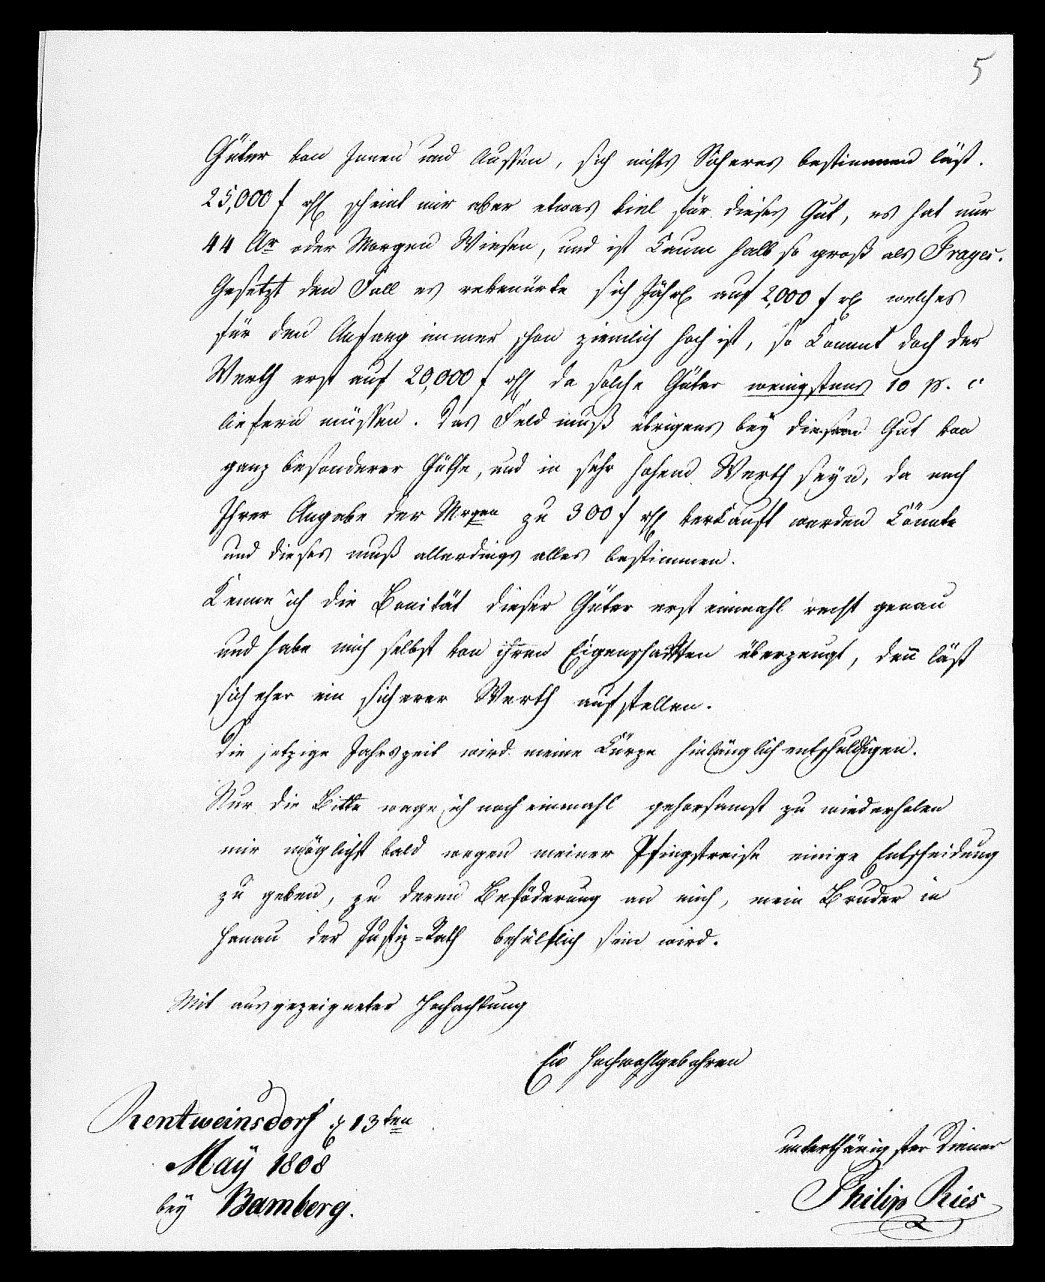 5
Güter von Innen und Aussen, sich nichts Sicheres bestimmen läst.
25,000 f rh scheint mir aber etwas viel für dieses Gut, es hat nur
44 Ar oder Morgen Wiesen, und ist kaum halb so groß als Trages.
Gesetzt den Fall es rebenürte sich Jährl auf 2,000 f rh welches
für den Anfang immer schon ziemlich hoch ist, so kommt doch der
Werth erst auf 20,000 f rh da solche Güter wenigstens 10 p. c
liefern müssen. Das Feld muß übrigens bey diesem Gut von
ganz besonderer Güthe, und in sehr hohem Werth seyn, da nach
Ihrer Angabe der Mrgen zu 300 f rh verkauft werden könnte
und dieses muß allerdings alles bestimmen.
Kenne ich die Bonität dieser Güter erst einmahl recht genau
und habe mich selbst von ihren Eigenschaften überzeugt, den̄ läst
sich eher ein sicherer Werth aufstellen.
Die jetzige Jahrszeit wird meine Kürze hinlänglich entschuldigen.
Nur die Bitte wage ich noch einmahl gehorsamst zu wiederholen
mir möglichst bald wegen meiner Pfingstreise einige Entscheidung
zu geben, zu deren Beföderung an mich, mein Bruder in
Hanau der Justiz=Rath behülflich sein wird.
Mit ausgezeigneter Hochachtung
Ew Hochwohlgebohren
Rentweinsdorf d 13ten
Maÿ 1808
beÿ Bamberg.
unterthänigster Diener
Philip Ries